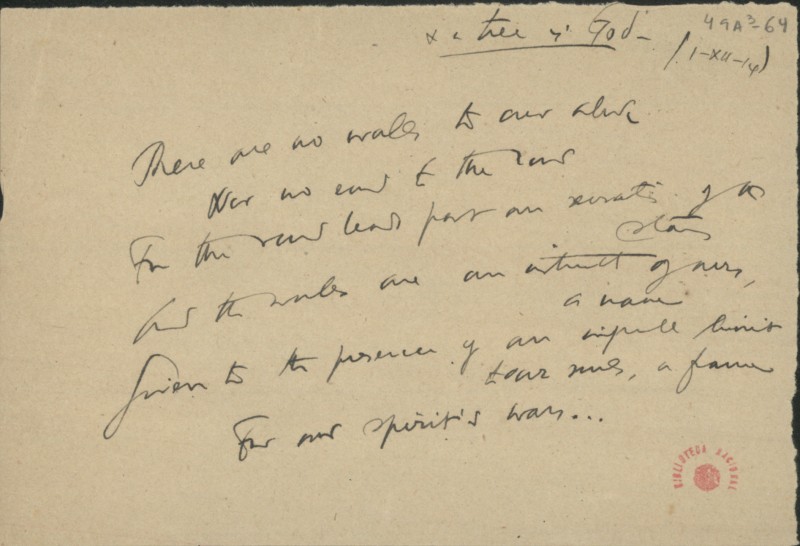 49A³-64
x a tree is God –
(1-XII-14)
There are no walls to our abode
Nor no end to the road
For the road leads past our of the
stars
And the walls are an instinct of ours,
a name
Given to the presence of an limit
to our souls, a frame
For our spirit's wars...
BIBLIOTECA NACIONAL